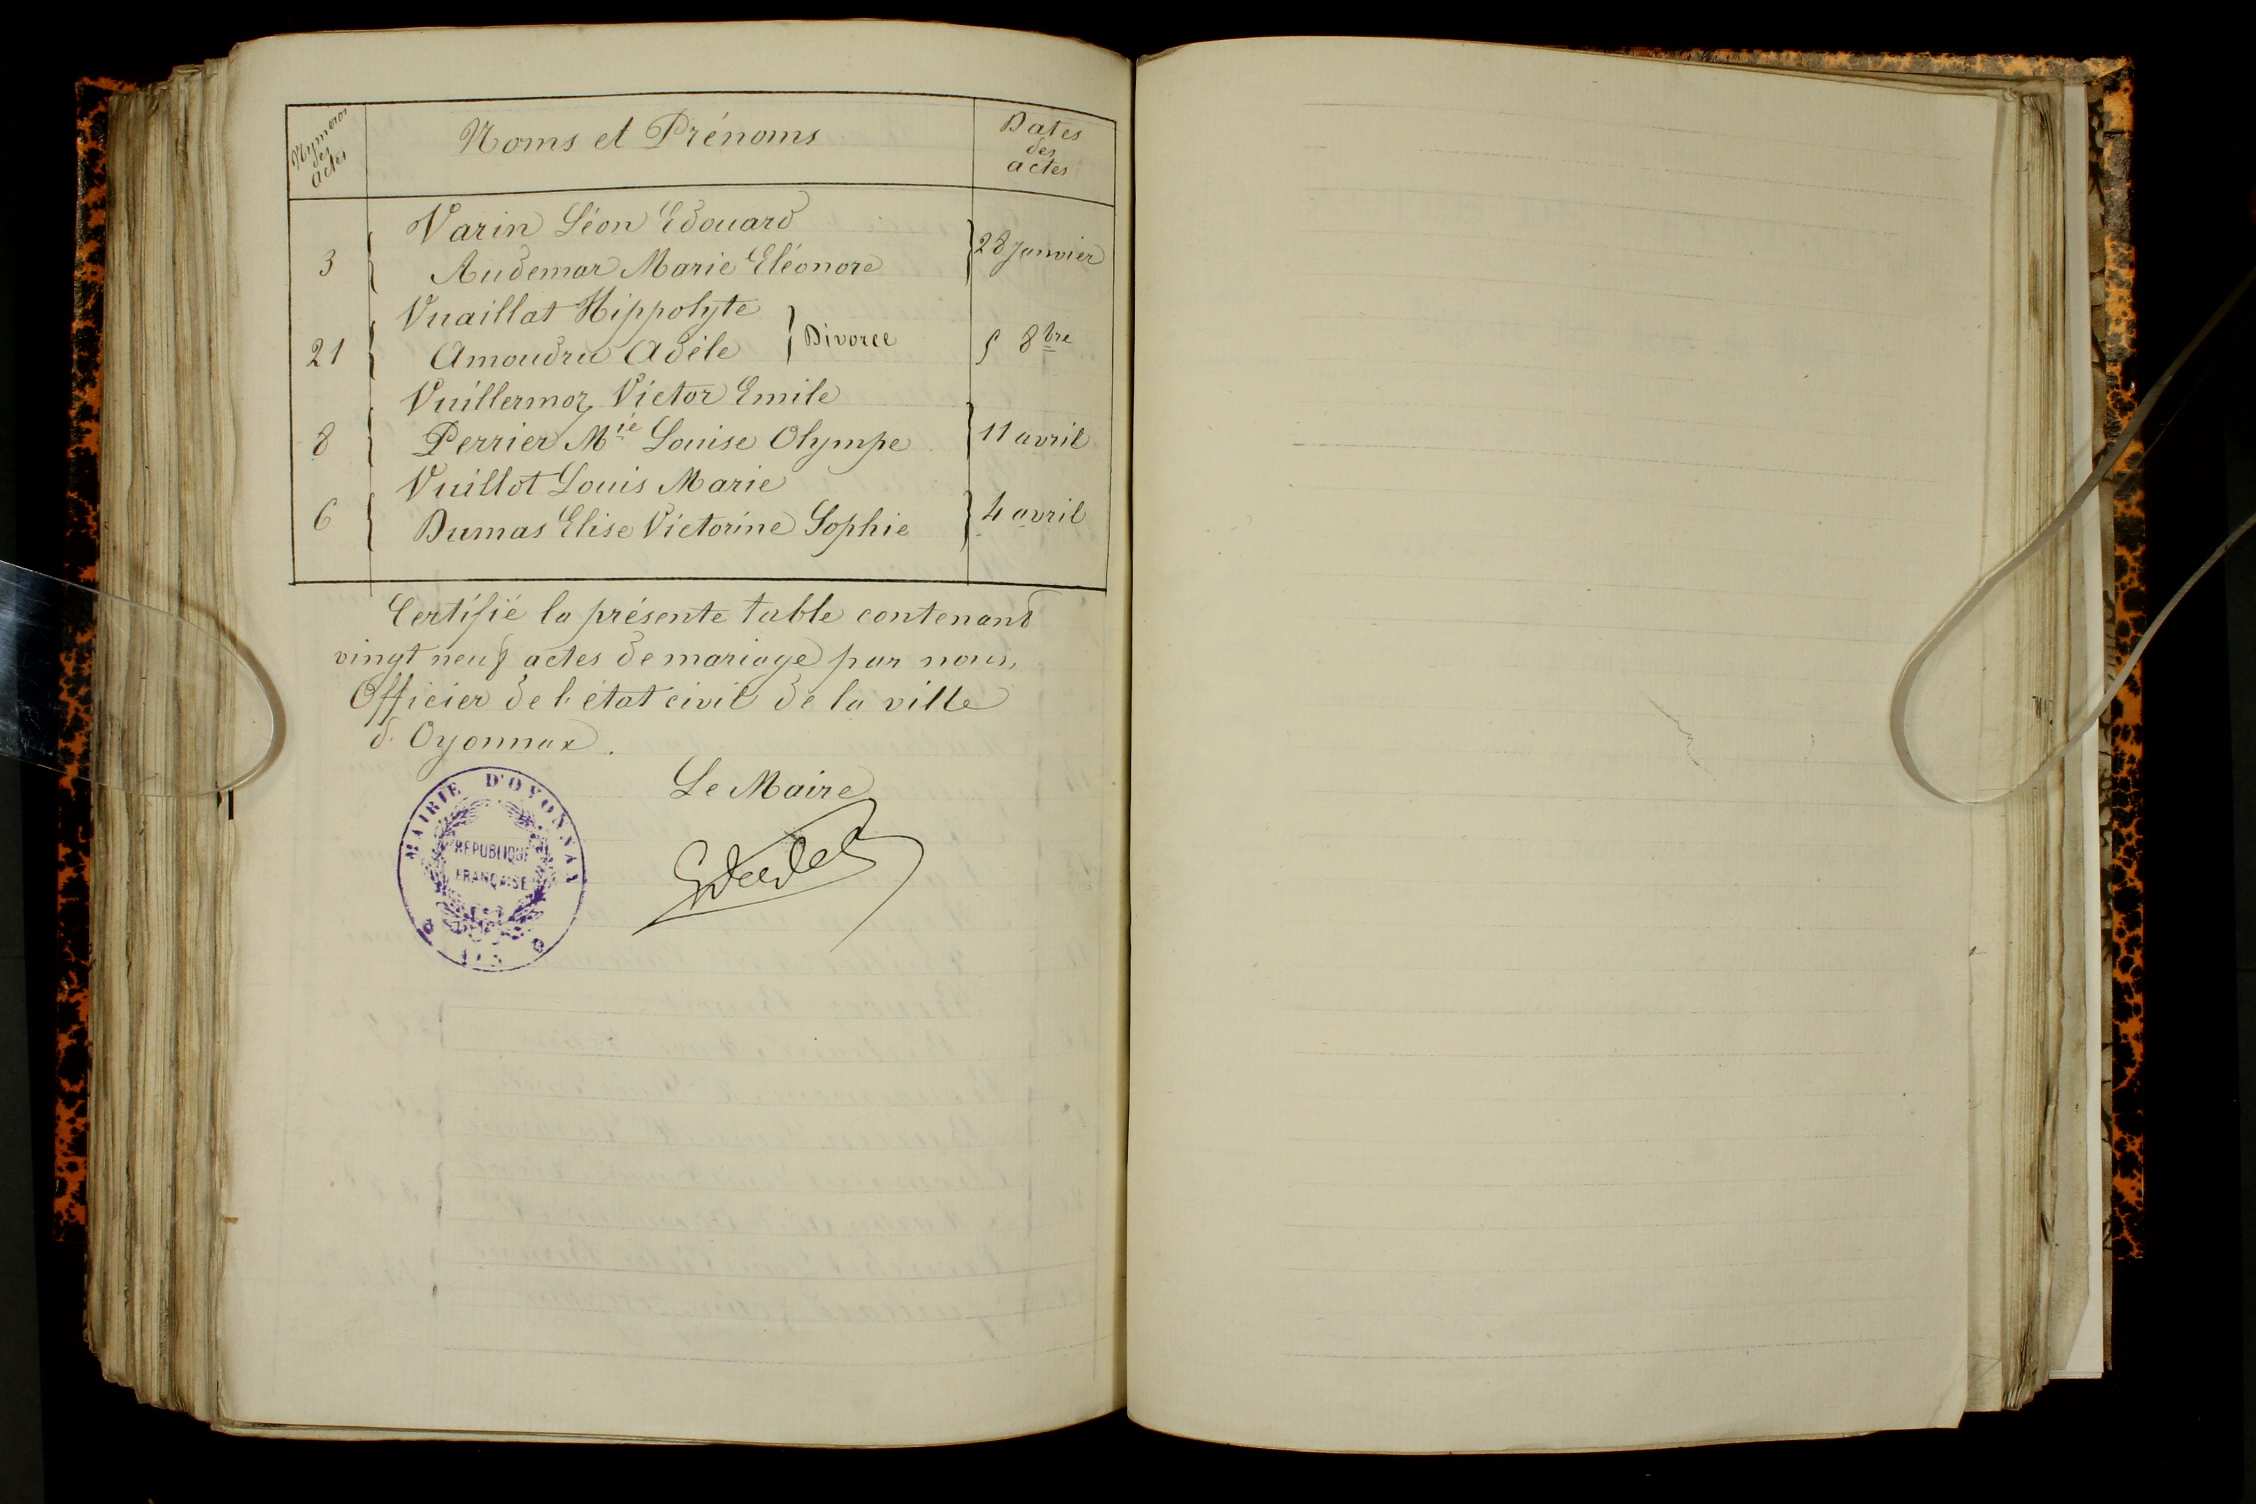 Numeros
des
actes
Noms et Prénoms
Dates
des
actes
Varin Léon Edouard
3
Audemar Marie Eléonore
28 Janvier
Vuaillat Hippolyte
21
Amoudru Adèle
Divorce
5 8bre
Vuillermoz Victor Emile
8
Perrier Mie Louise Olympe
11 avril
Vuillot Louis Marie
6
Dumas Elise Victorine Sophie
4 avril
Certifié la présente table contenant
vingt neuf actes de mariage par nous,
Officier de l'état civil de la ville
d'Oyonnax.
Le Maire
MAIRIE D'OYONNAX
RÉPUBLIQUE
FRANÇAISE
AIN